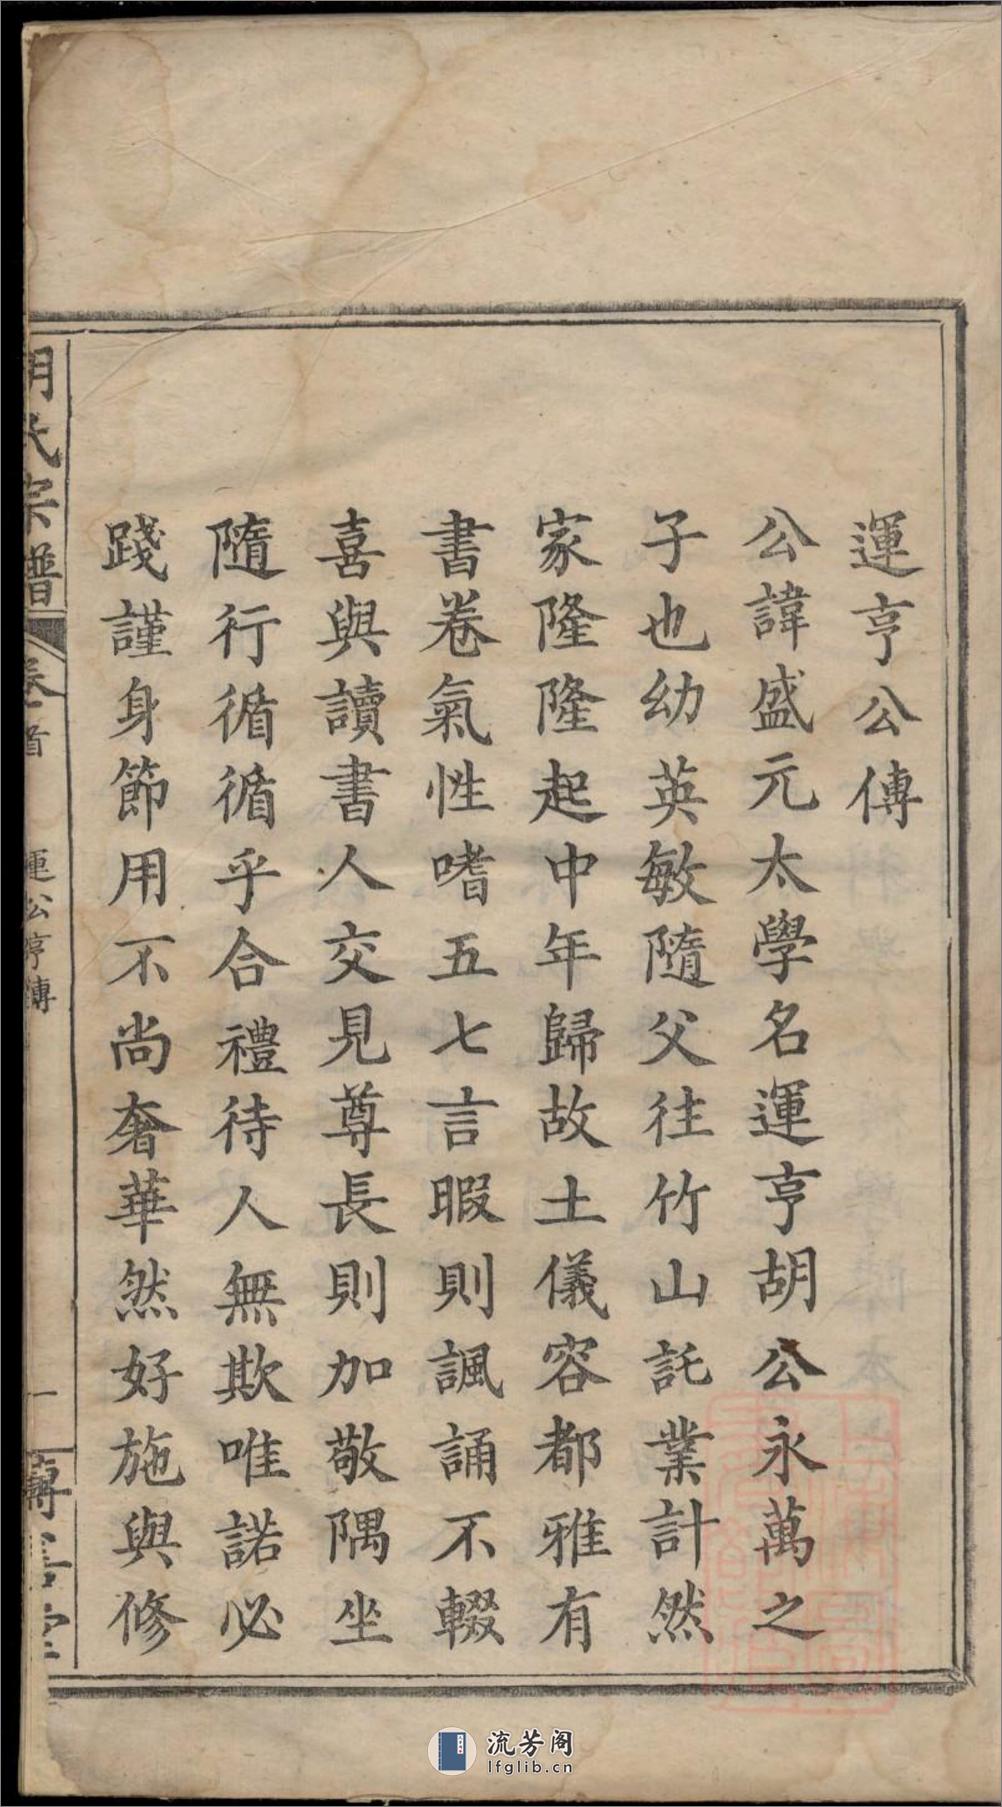 運亨公傳
公諱盛元太學名運亨胡公永萬之
子也幼英敏隨父往竹山託業計然
家隆隆起中年歸故土儀容都雅有
書卷氣性嗜五七言暇則諷誦不輟
喜與讀書人交見尊長則加敬隅坐
隨行循循乎合禮待人無欺唯諾必
踐謹身節用不尚奢華然好施與修
胡氏宗譜
卷首
運公亨傳
一
流芳阁
lfglib.cn